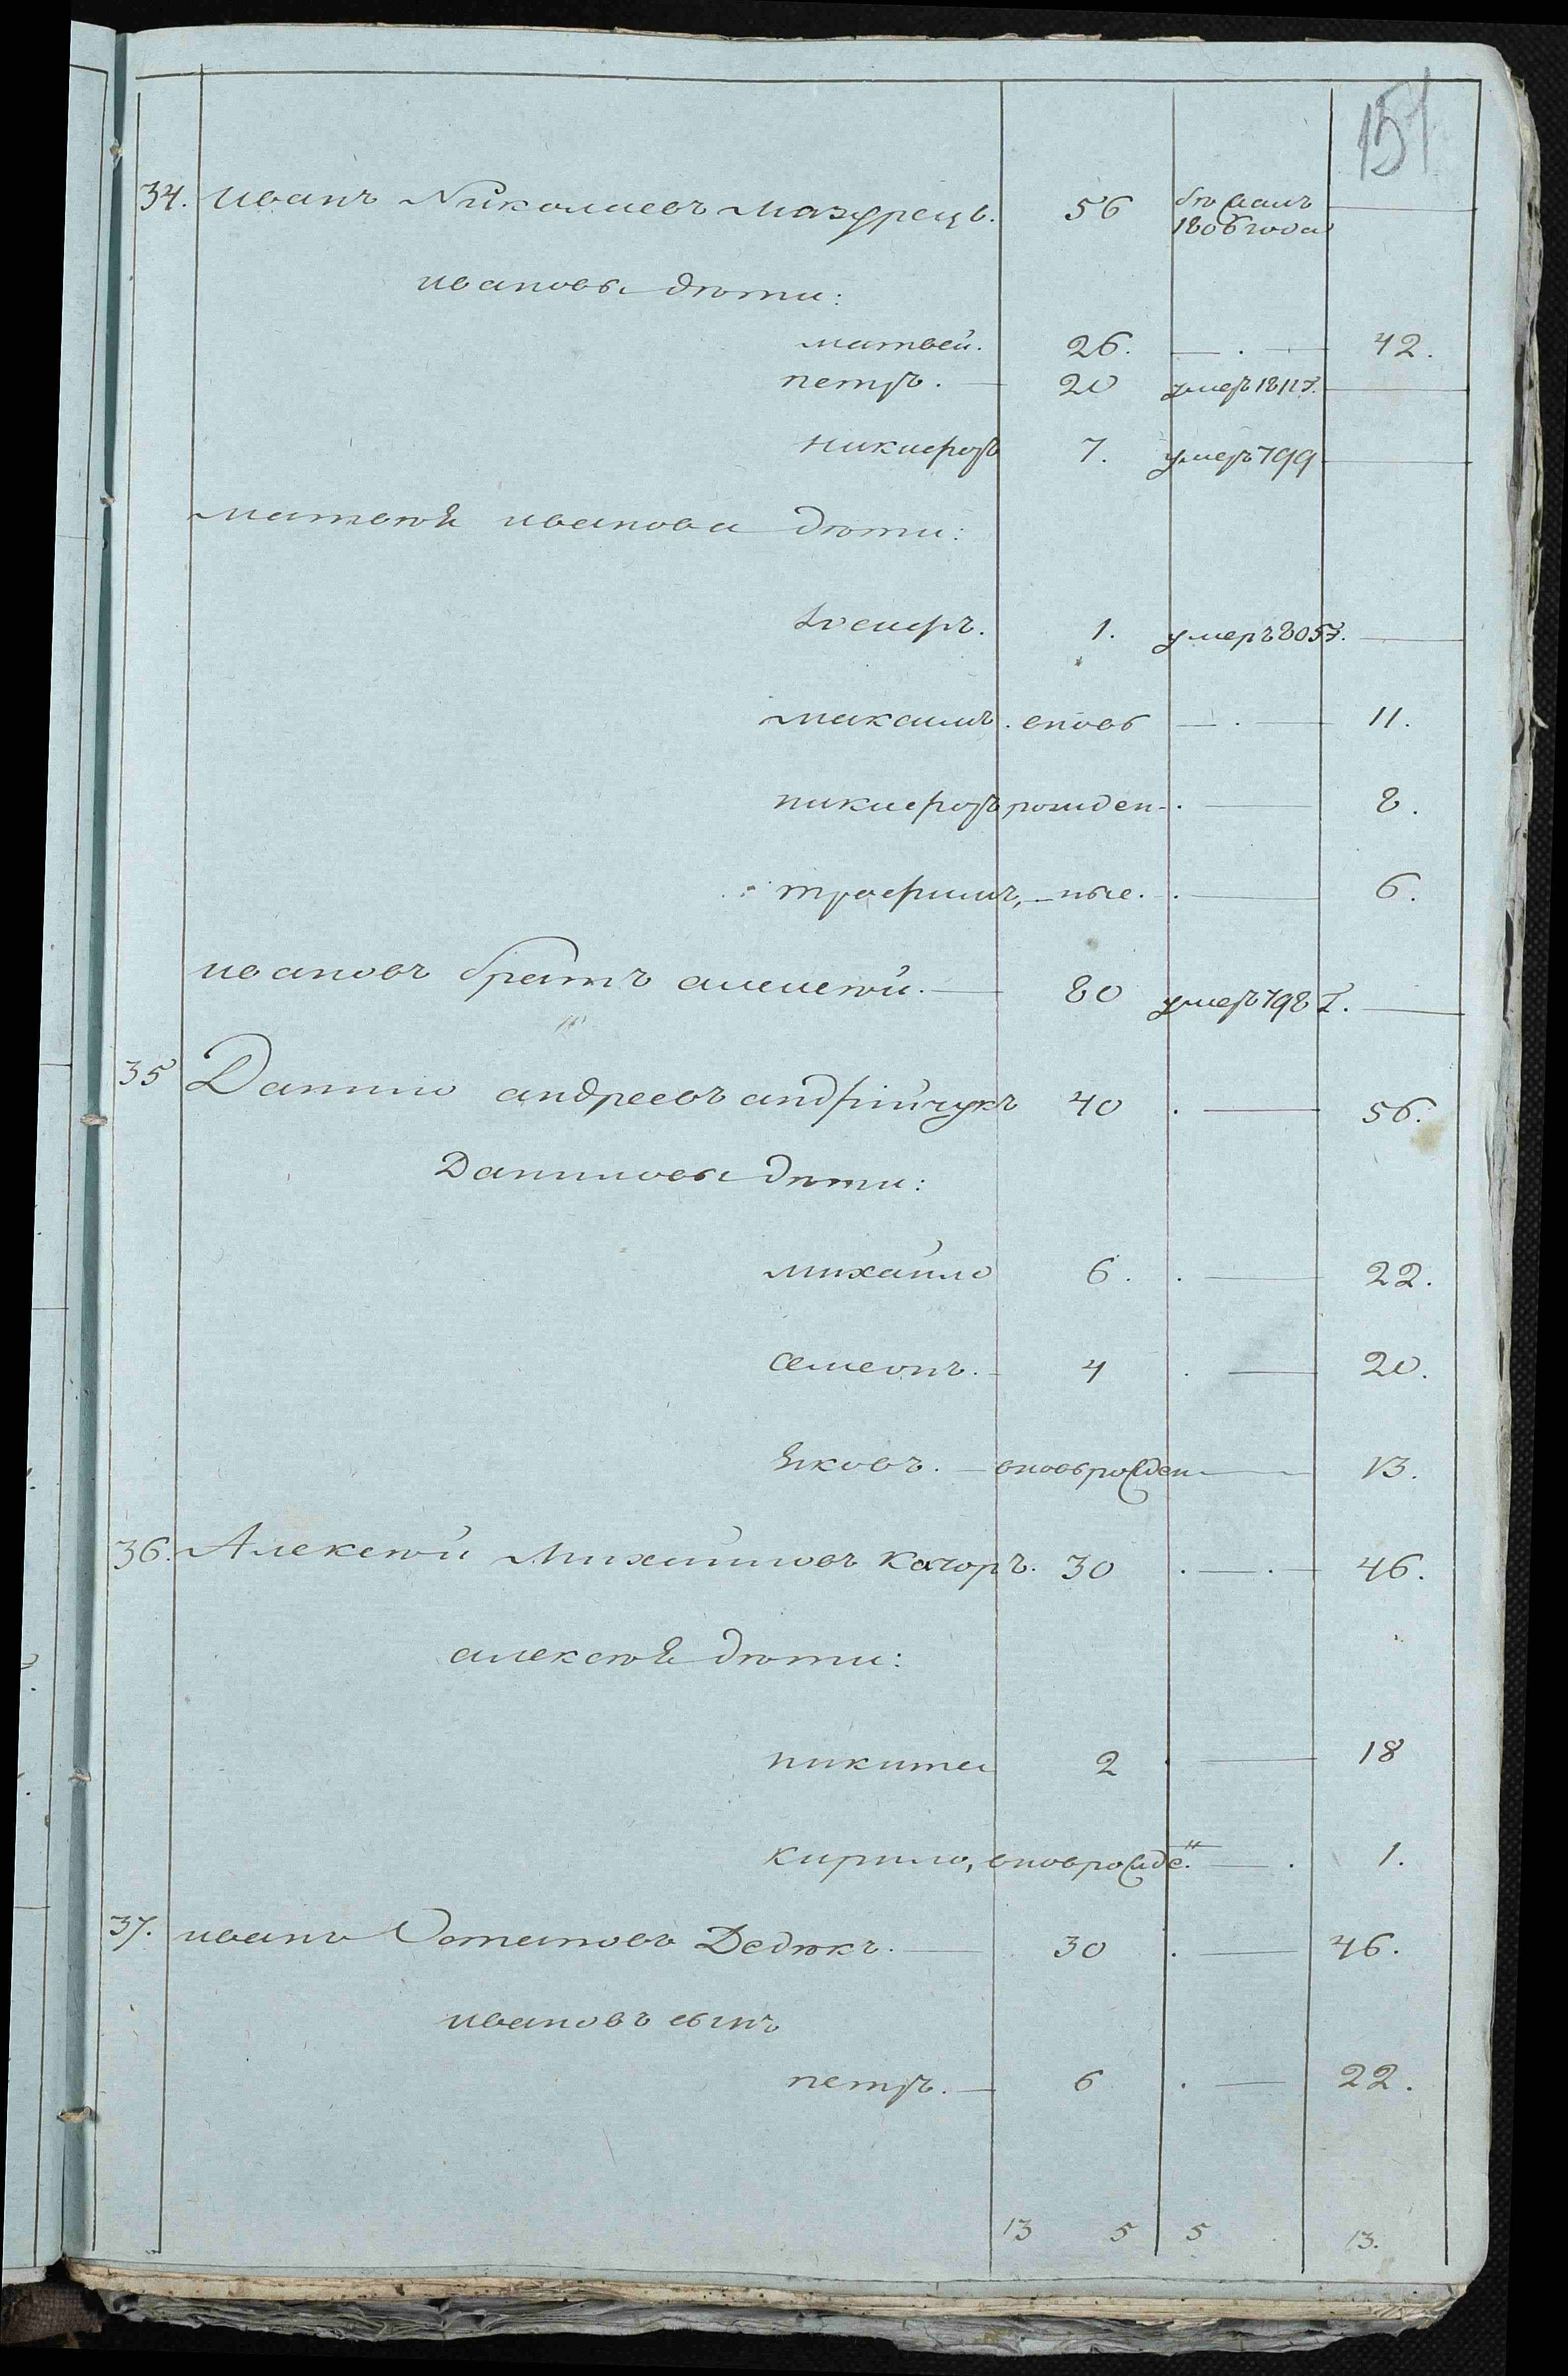 151
34. Иванъ Николаевъ Мазурецъ. 56 бѣжалъ
1806 года
Ивановы дѣти:
матвей. 26. 42.
петръ. 20 умеръ 811 г.
никифоръ 7. умеръ 799
матвѣя иванова дѣти:
1. умеръ 805 г.
максимъ. вновь 11.
никифоръ рожден- 8.
трофимъ, -ные. 6.
ивановъ братъ алексѣй. 80 умеръ 798 г.
35 Данило андреевъ андрійчукъ 40 56.
Даниловы дѣти:
михайло 6. 22.
семенъ. 4 20.
яковъ. вновь рожден 13.
36. Алексѣй Михайловъ Качоръ. 30 46.
алексѣя дѣти:
никита 2 18
кирило, вновь рожде. 1.
37. иванъ Остаповъ Дедюкъ. 30 46.
ивановъ сынъ
петръ. 6 22.
13 5 5 13.